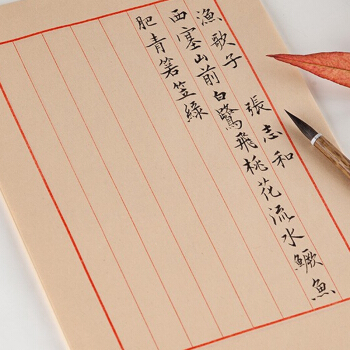 漁歌子　張志和
西塞山前白鷺飛桃花流水鱖魚
肥青箬笠綠